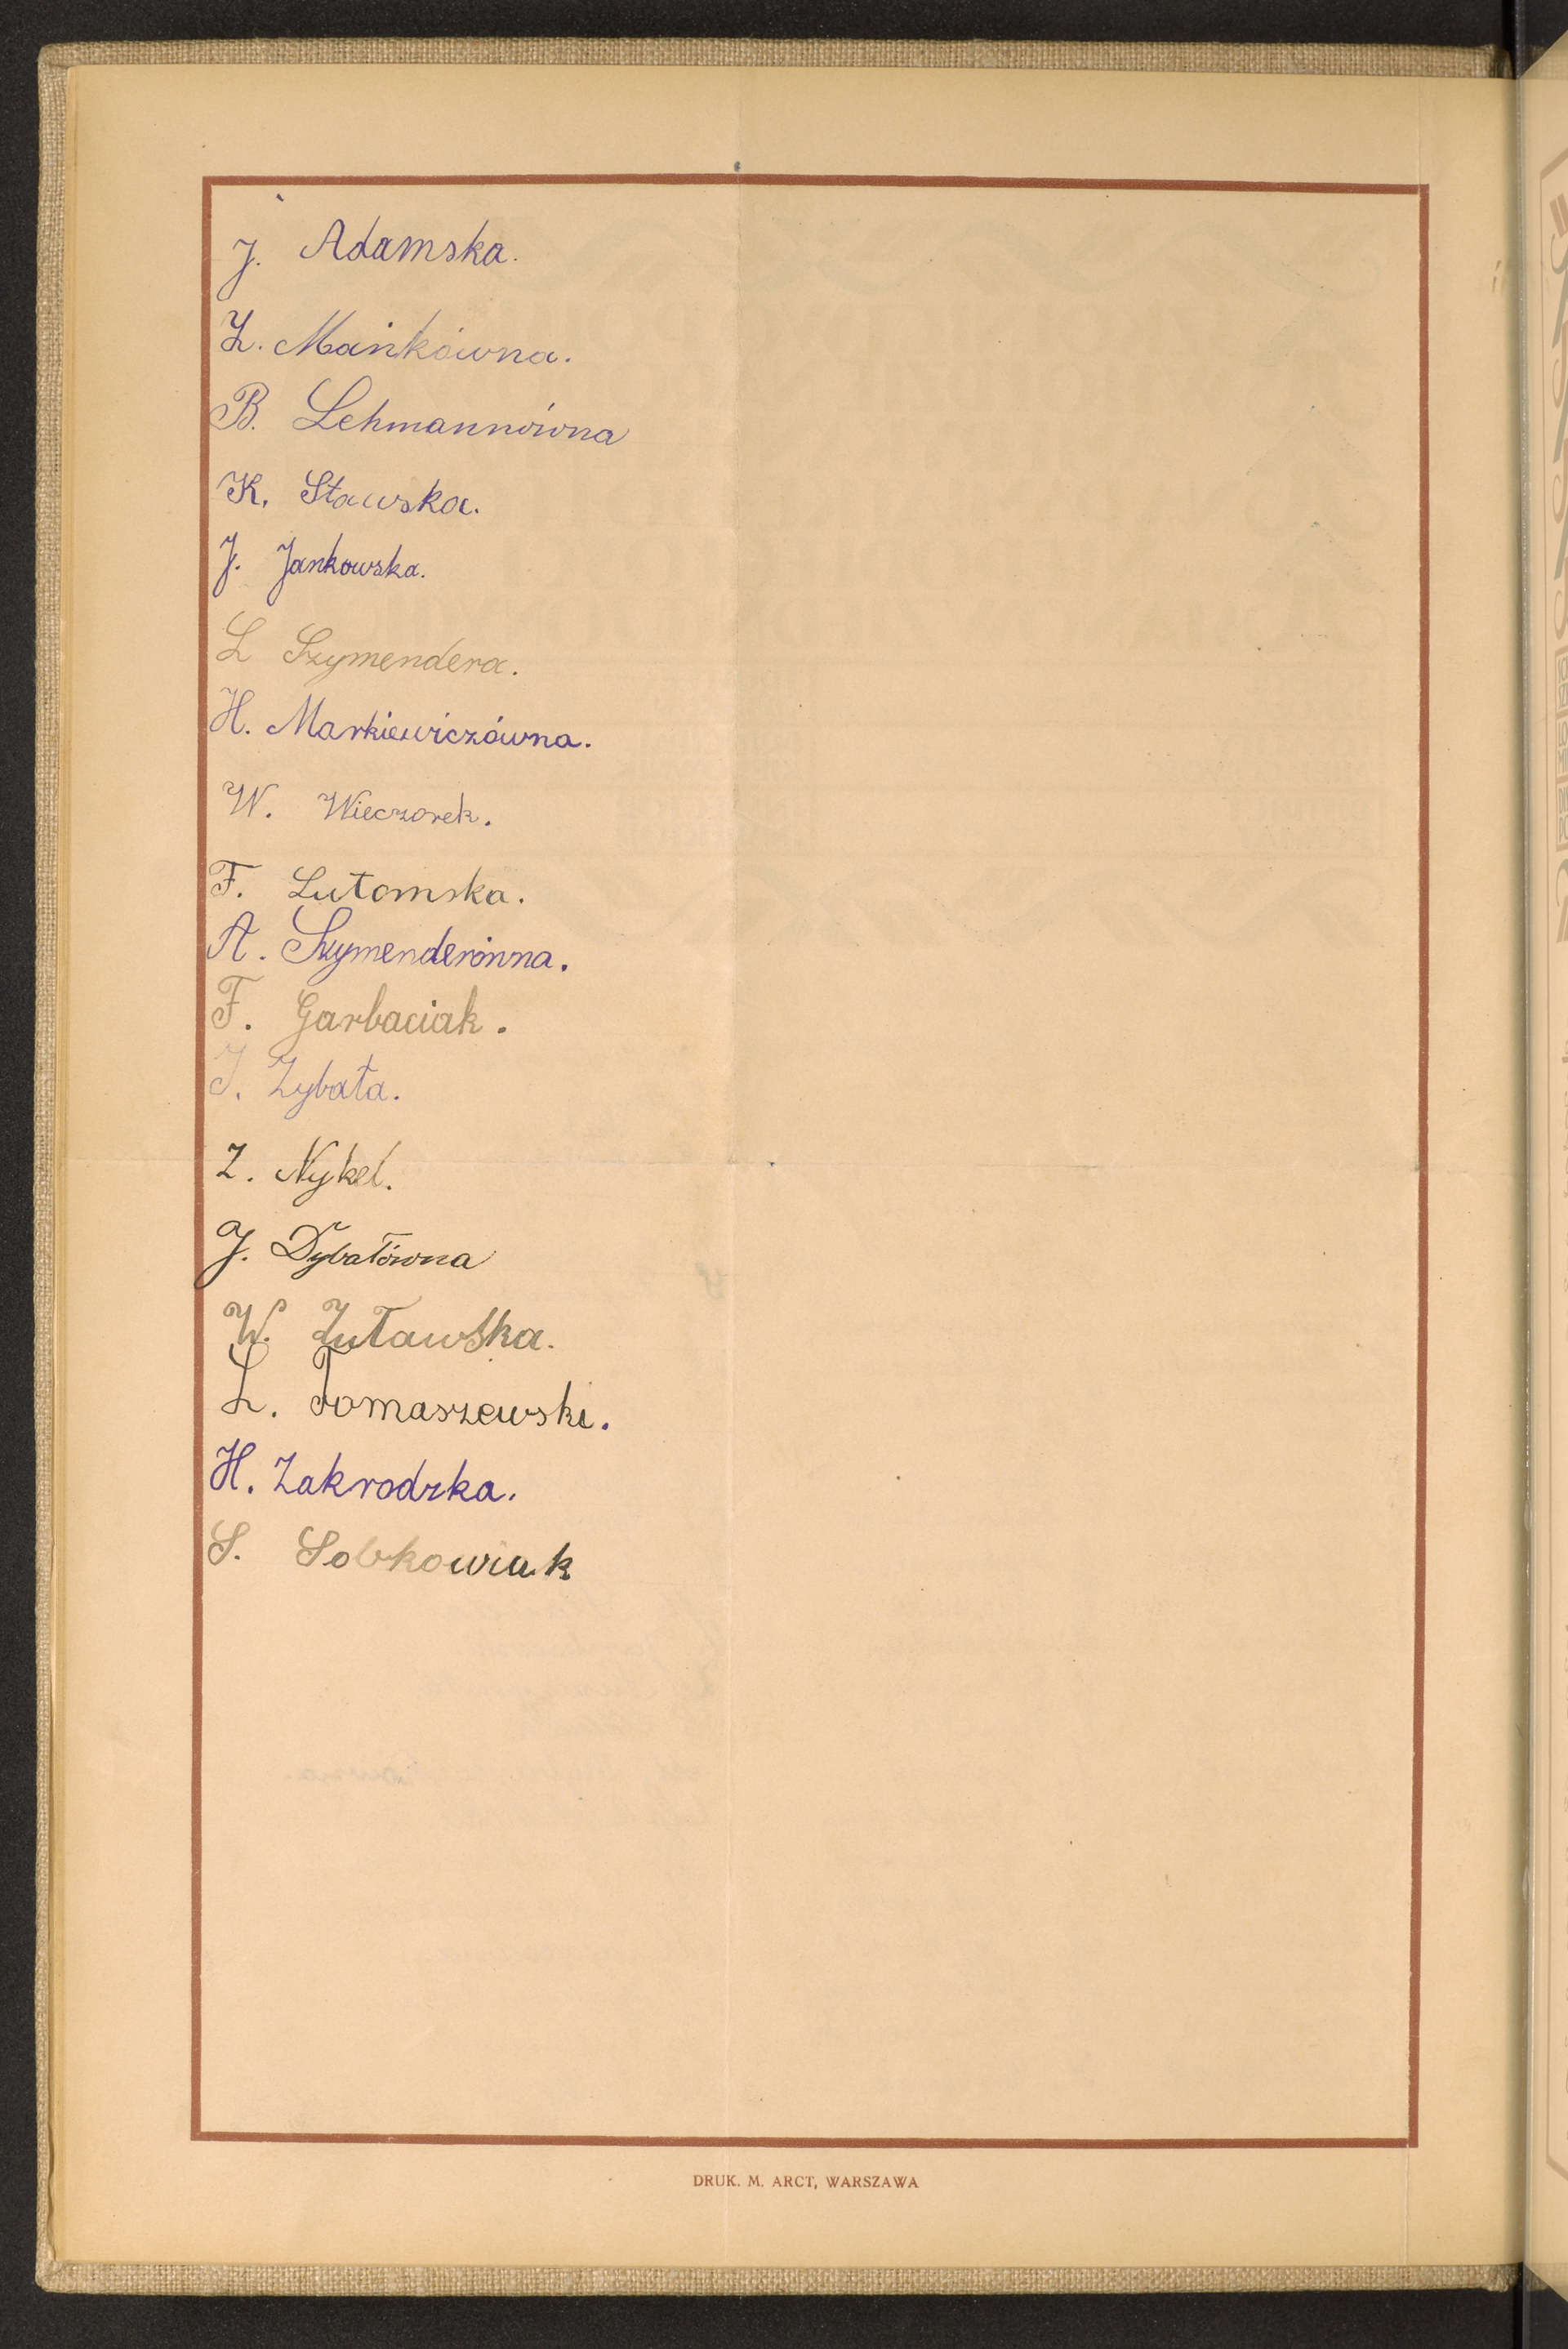 J. Adamska.
Z. Mańkówna.
B. Lehmannówna
K. Stawska.
J. Jankowska.
L Szymendera.
H. Markiewiczówna.
W. Wieczorek.
F. Lutomska.
A. Szymenderówna.
F. Garbaciak.
J. Zybała.
Z. Nykel.
J. Dybałówna
W. Żuławska.
L. Tomaszewski.
H. Zakrodzka.
S. Sobkowiak
DRUK. M. ARCT, WARSZAWA